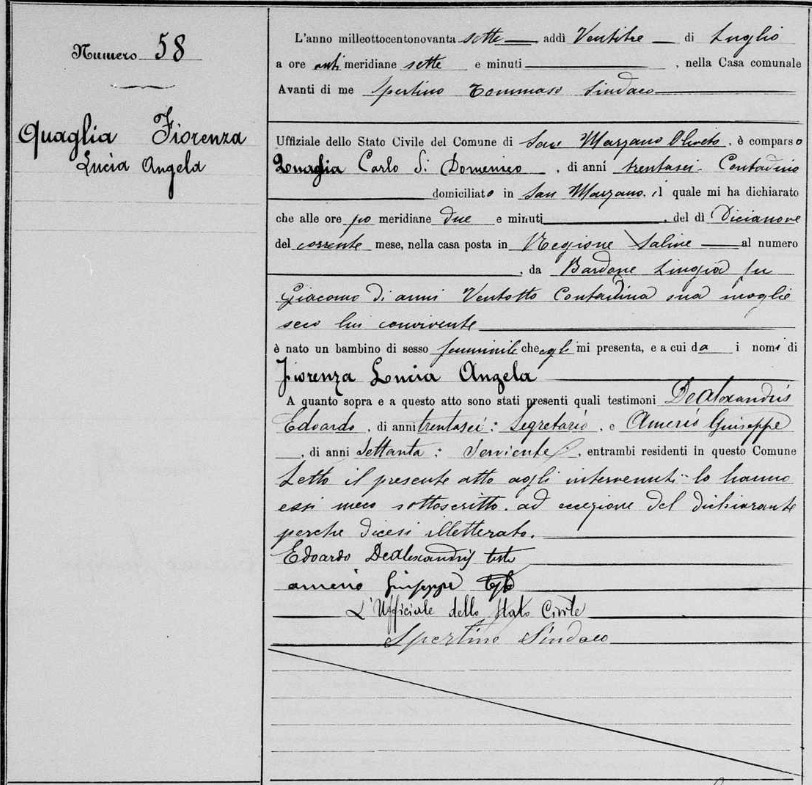 Numero 58
Quaglia Fiorenza
Lucia Angela
L'anno milleottocentonovanta sette addì Ventitre di Luglio
a ore anti meridiane sette e minuti , nella Casa comunale
Avanti di me Spertino Tommaso Sindaco
Uffiziale dello Stato Civile del Comune di San Marzano Oliveto, è comparso
Quaglia Carlo di Domenico, di anni trentasei Contadino
domiciliato in San Marzano, il quale mi ha dichiarato
che alle ore po meridiane due e minuti , del dì Dicianove
del corrente mese, nella casa posta in Regione Saline al numero
, da Bardone Luigia fu
Giacomo di anni Ventotto Contadina sua moglie
seco lui convivente
è nato un bambino di sesso femminile che egli mi presenta, e a cui da i nomi di
Fiorenza Lucia Angela
A quanto sopra e a questo atto sono stati presenti quali testimoni DeAlexandris
Edoardo, di anni trentasei: Segretario, e Amerio Giuseppe
, di anni Settanta: Serviente, entrambi residenti in questo Comune
Letto il presente atto agli intervenuti lo hanno
essi meco sottoscritto. ad eccezione del dichiarante
perche dicesi illetterato.
Edoardo DeAlexandris teste
amerio Giuseppe
L'Ufficiale dello Stato Civile
Spertino Sindaco